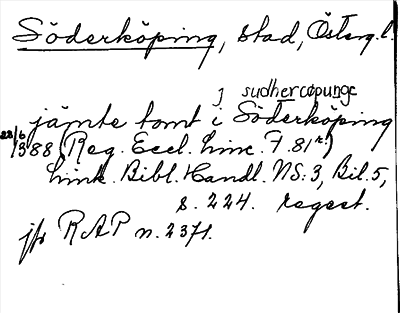 Söderköping, stad, Österg.l.
J sudhercøpunge
jämte tomt i Söderköping
22/6 1388 (Reg. Eccl. Linc. F. 81 r.)
Link. Bibl. Handl. NS: 3, Bil. 5,
s. 224. regest.
jfr RAP n. 2371.